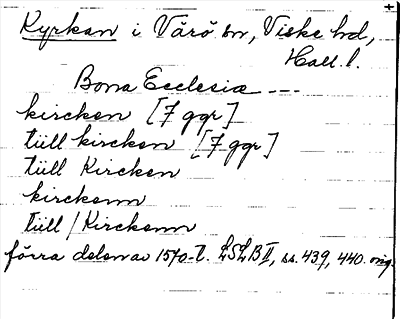 Kyrkan i Värö sn, Viske hd,
Hall. l.
Bona Ecclesiæ ---
kircken [7 ggr]
tüll kircken [7 ggr]
tüll Kircken
kirckenn
tüll / Kirckenn
förra delen av 1570-t. LSLB II, ss. 439, 440. orig.